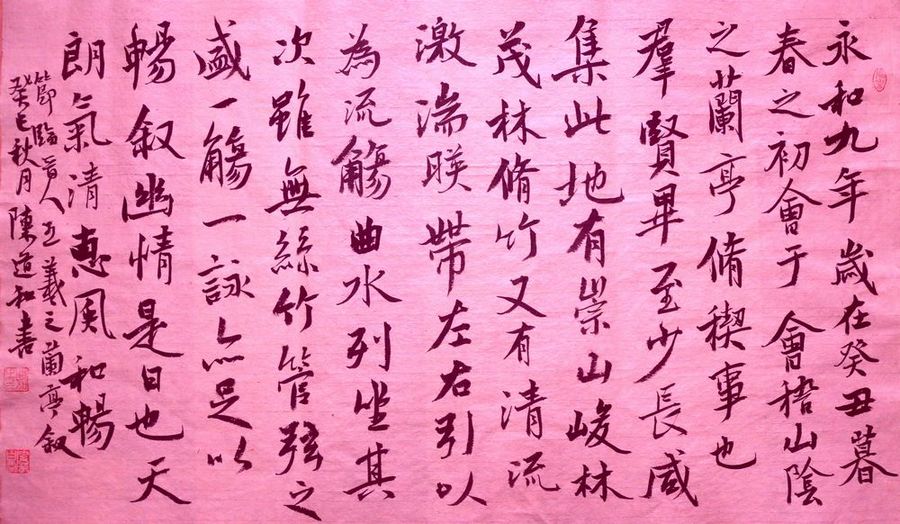 永和九年歲在癸丑暮
春之初會于會稽山陰
之蘭亭脩稧事也
羣賢畢至少長咸
集此地有崇山峻林
茂林脩竹又有清流
激湍暎帶左右引以
為流觴曲水列坐其
次雖無絲竹管弦之
盛一觴一詠亦足以
暢叙幽情是日也天
朗氣清惠風和暢
節臨晉人王羲之蘭亭叙
癸巳秋月陳道和書